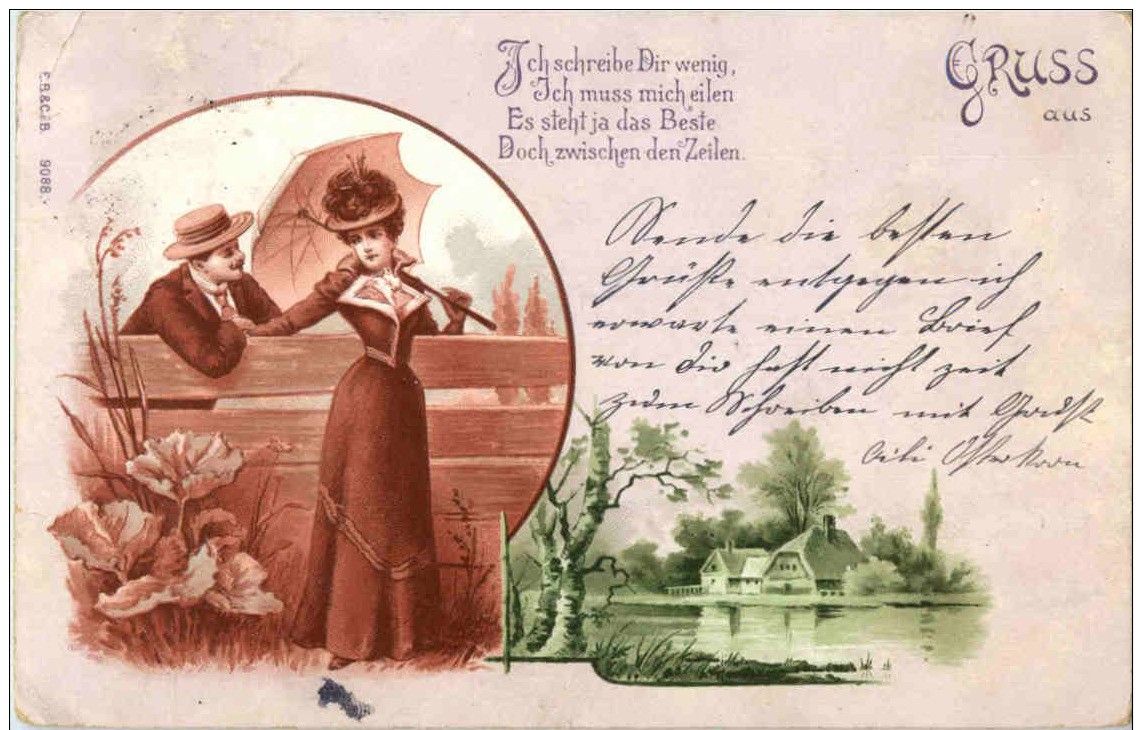 Ich schreibe Dir wenig,
Ich muss mich eilen
Es steht ja das Beste
Doch zwischen den Zeilen.
GRUSS
aus
9088.
Sende die besten
Grüße entgegen ich
erwarte einen Brief
von Dir hast nicht zeit
zum Schreiben mit Gruß